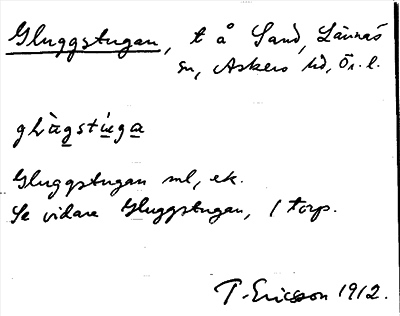 Gluggstugan, t å Sand, Lännäs
sn, Askers hd, Ör. l.
glùgstúga
Gluggstugan ml, ek.
Se vidare Gluggstugan, 1 torp.
T. Ericsson 1912.